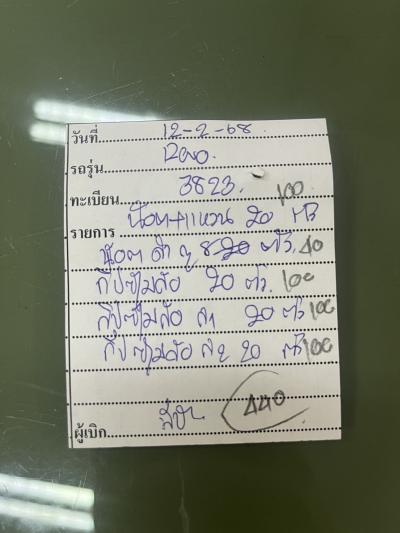 วันที่ 12-2-68
รถรุ่น
ทะเบียน 3823. 100
รายการ น๊อต+แหวน 20 ตัว
น๊อต ดำ 8 20 ตัว. 40
กิ๊ปซุ้มล้อ 20 ตัว. 100
กิ๊ปซุ้มล้อ 20 ตัว 100
กิ๊ปซุ้มล้อ 20 ตัว 100
ผู้เบิก 440